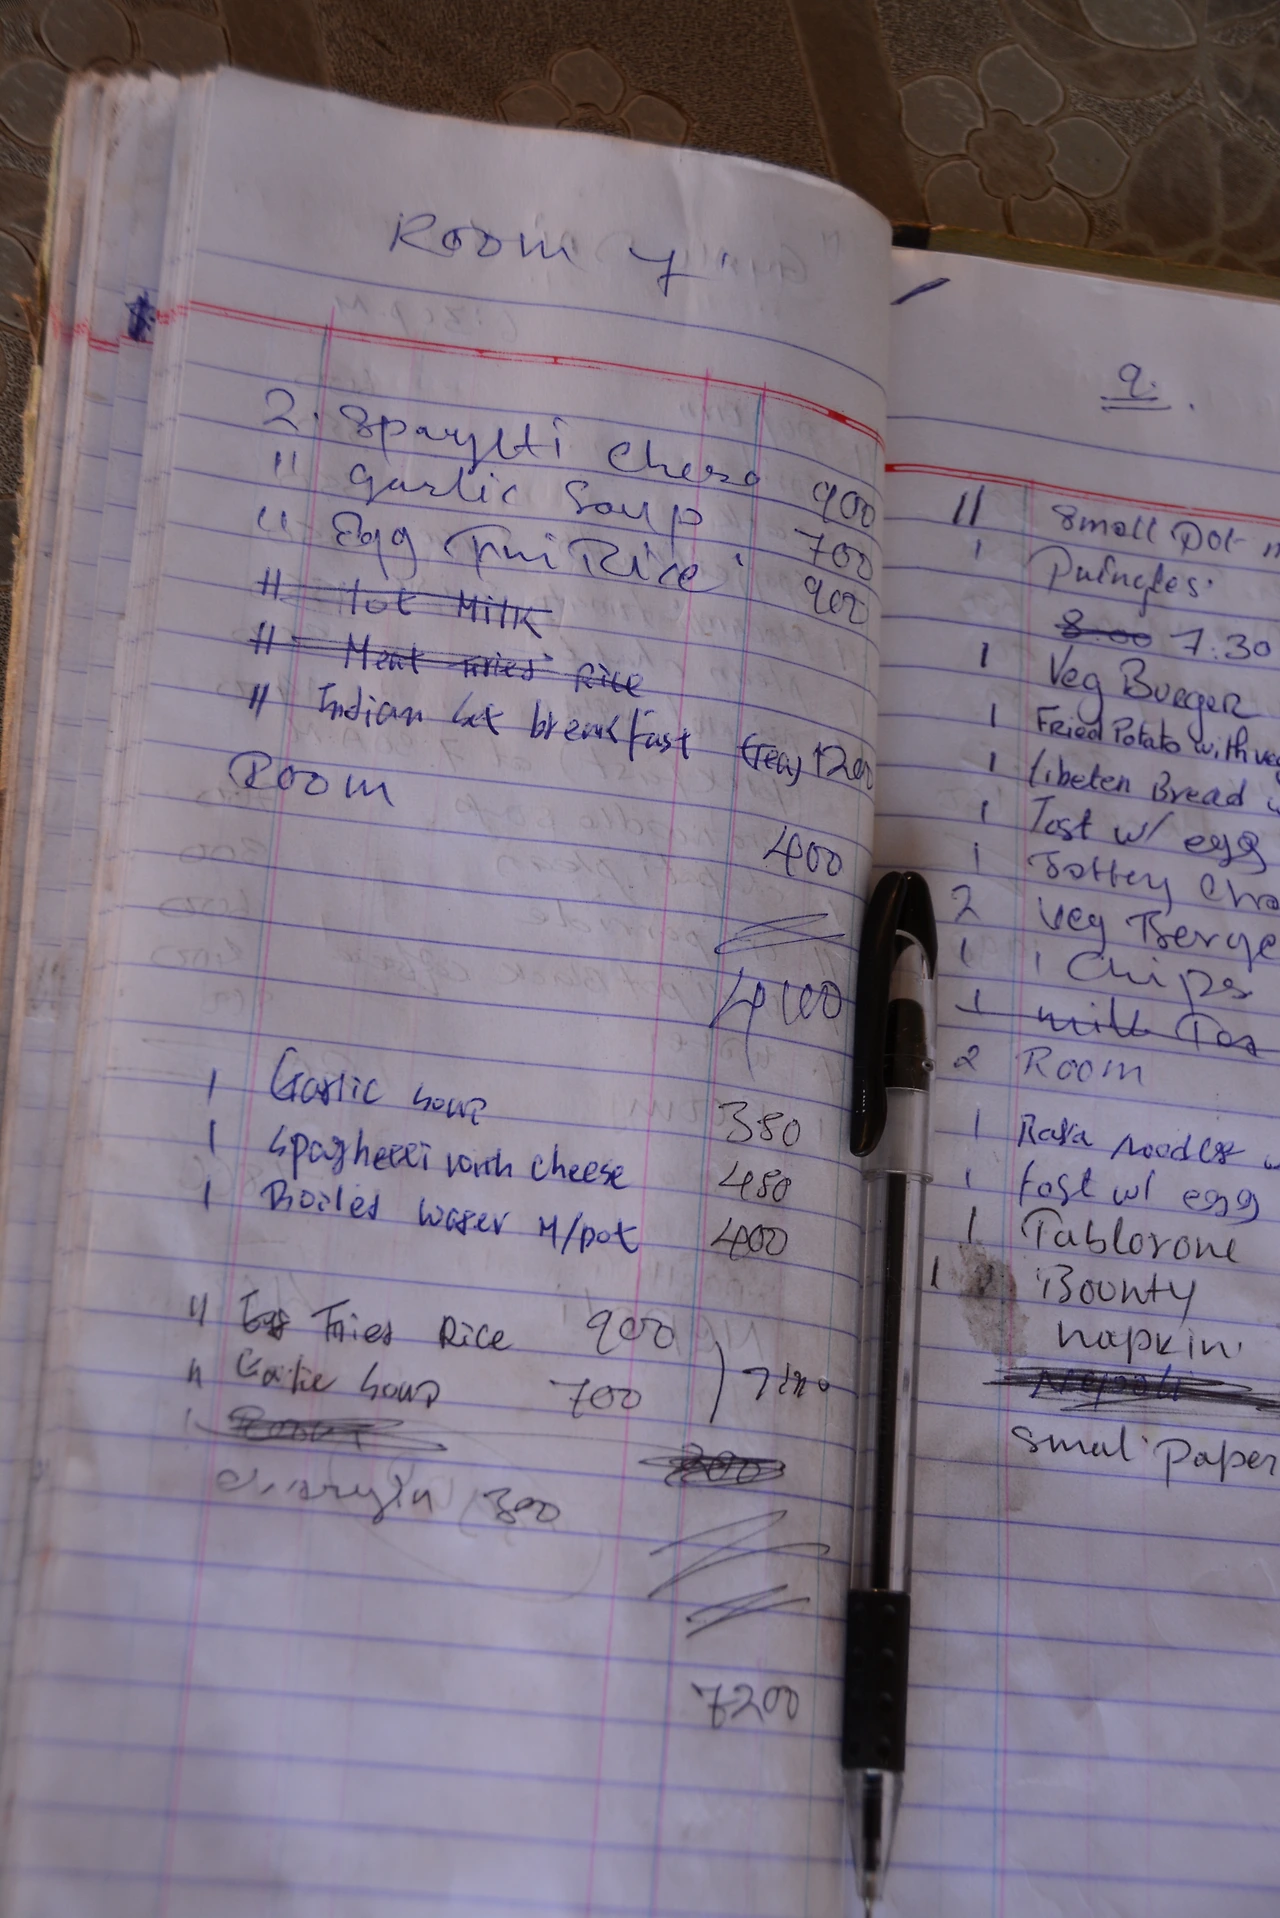 Room y
2. Spaygtti Chese 900
11 garlic Soup 700
11 Egg Frui Rice 900
11 Hot Milk
11 Meat Fried Rice
11 Indian Set breakfast (Tea) 1200
Room
400
4100
1 Garlic Soup 350
1 Spaghetti with cheese 450
1 Boiled Water M/pot 400
11 Egg Fried Rice 900
11 Garlic Soup 700
300
300
7200
9.
11 Small Pot
1 Pringles
8:00 7:30
1 Veg Burger
1 Fried Potato with veg
1 Tibeten Bread
1 Tost w/ egg
1
2 Veg Berge
1 1 Chips
1 milk Tea
2 Room
1 Rara Noodles
1 tost w/ egg
1 Tablorone
1 Bounty
napkin
Small paper